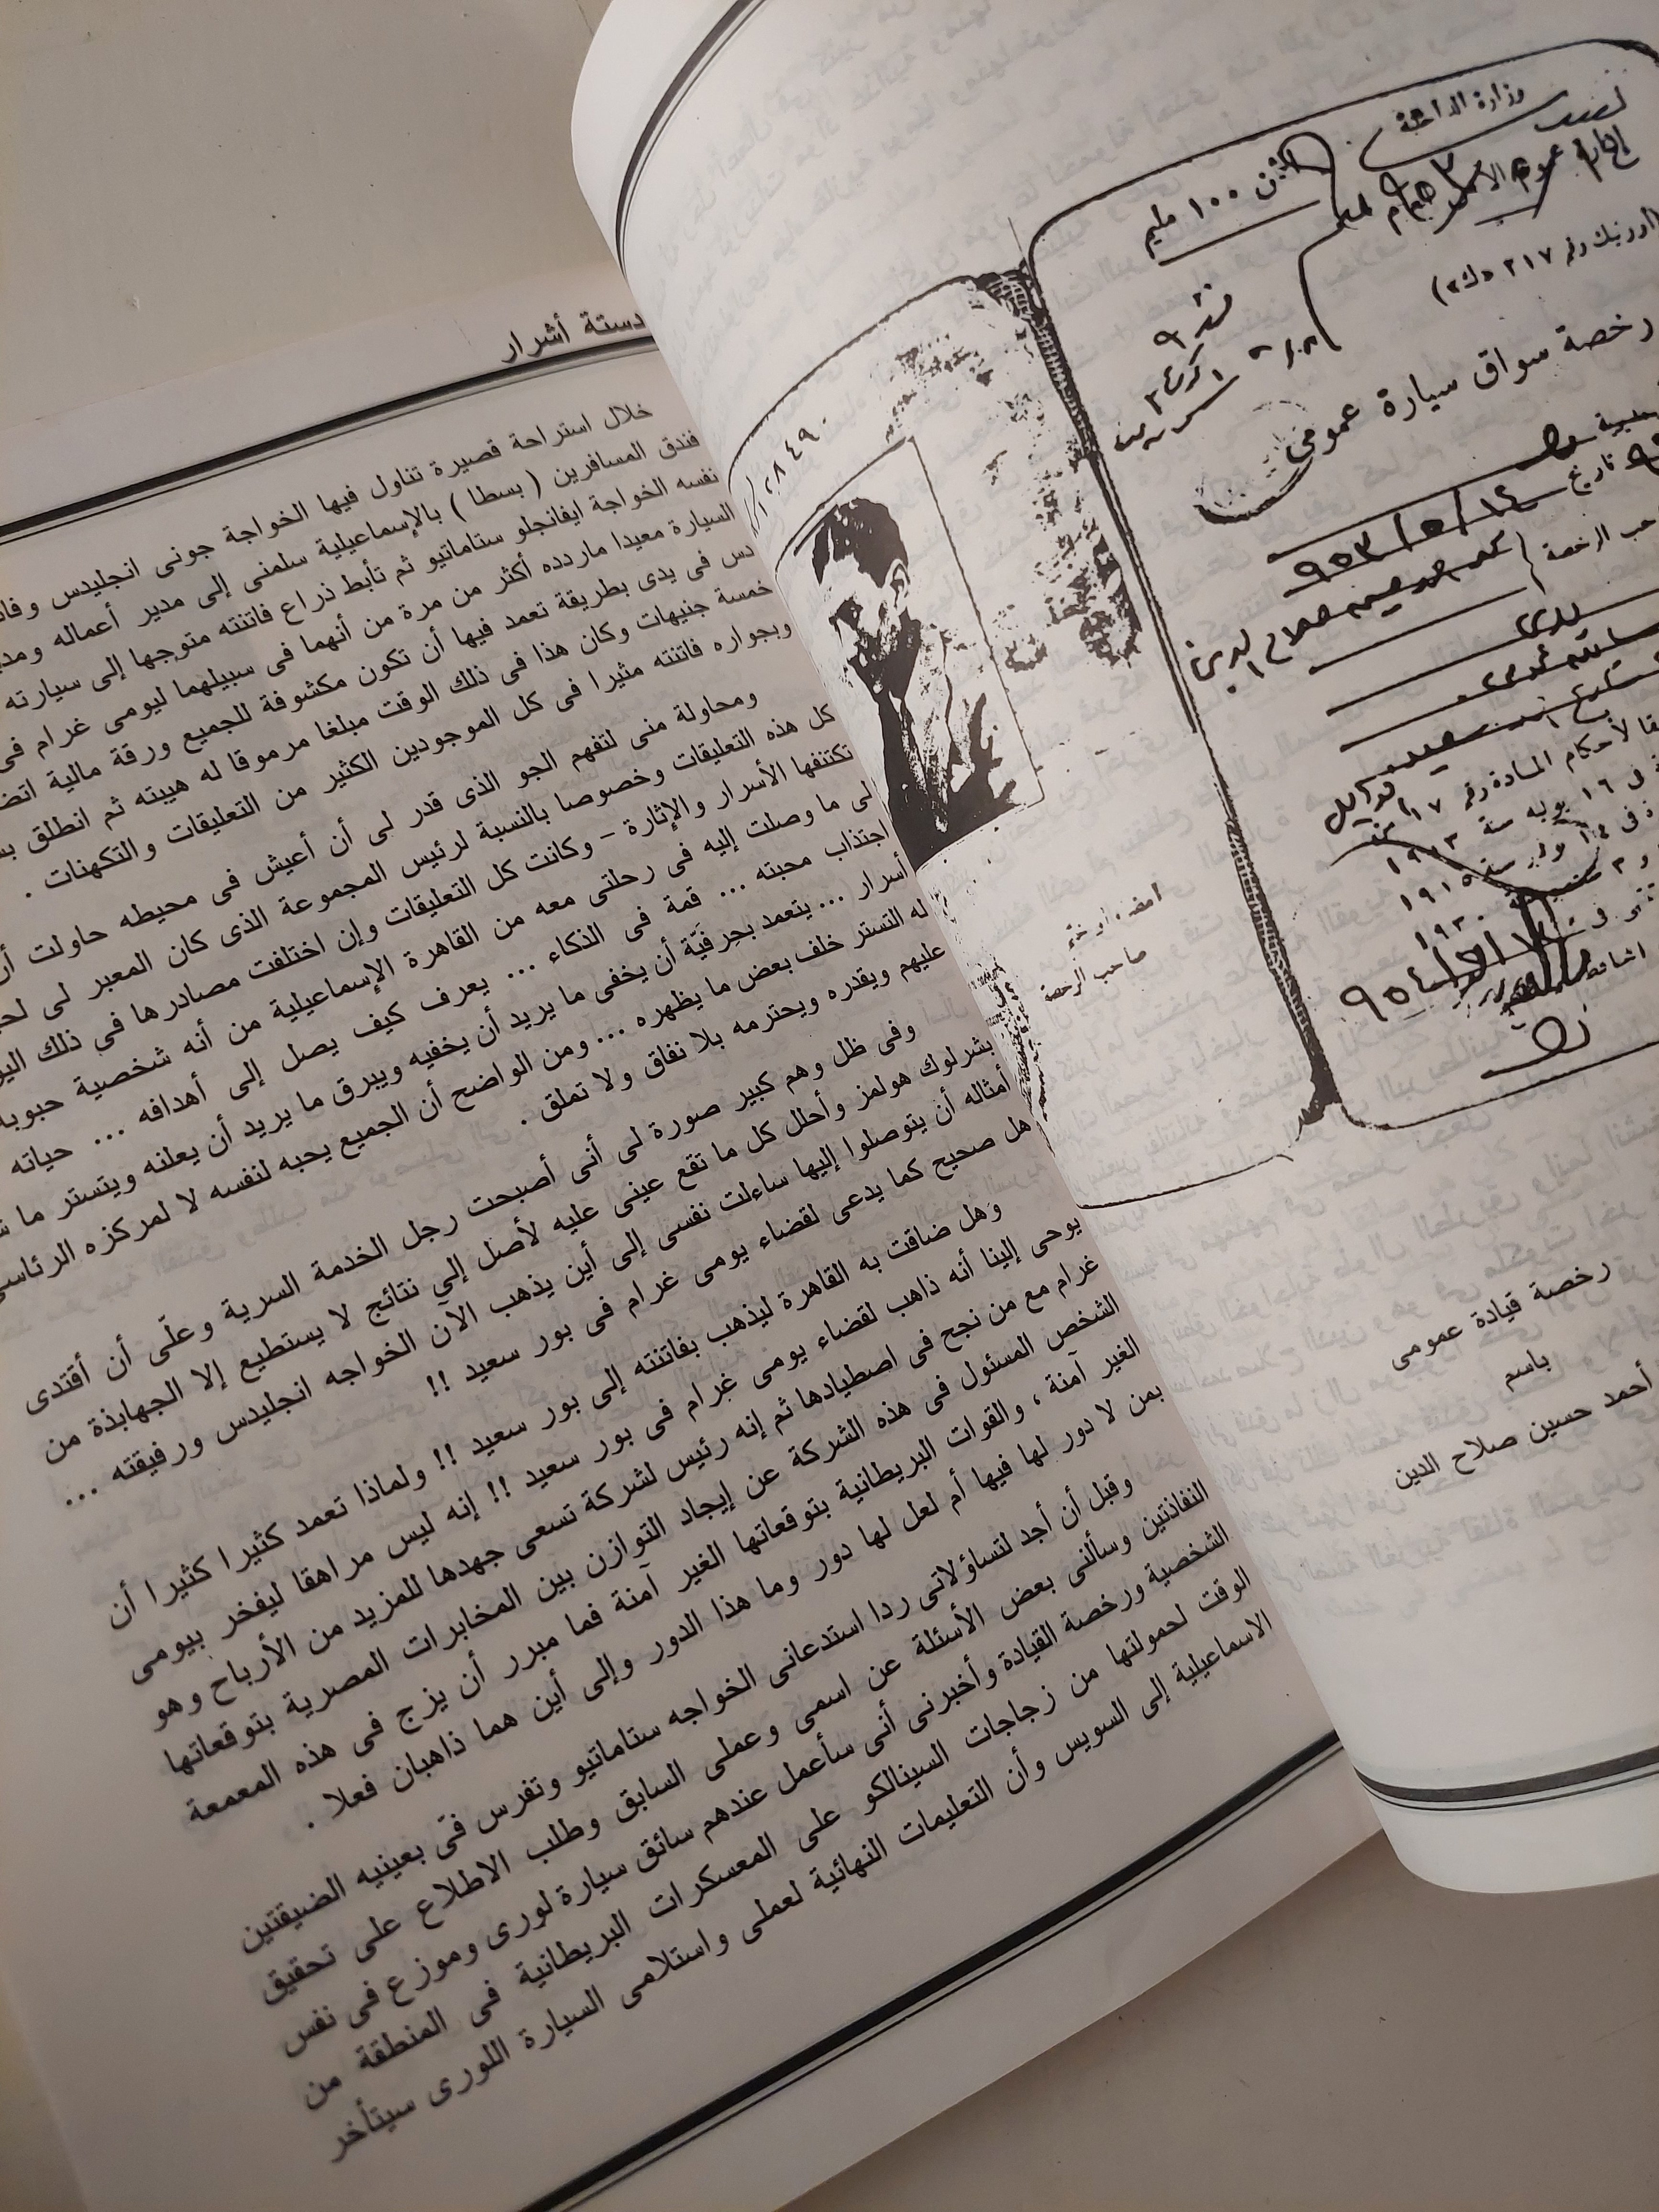 دستة أشرار
خلال استراحة قصيرة تناول فيها الخواجة جونى انجليدس
فندق المسافرين ( بسطا ) بالإسماعيلية سلمنى إلى مدير أعماله
نفسه الخواجة ايفانجلو ستاماتيو ثم تأبط ذراع فاتنته متوجها إلى سيارته
السيارة معيدا ماردده أكثر من مرة من أنهما فى سبيلهما ليومى غرام فى
دس فى يدى بطريقة تعمد فيها أن تكون مكشوفة للجميع ورقة مالية
خمسة جنيهات وكان هذا فى ذلك الوقت مبلغا مرموقا له هيبته ثم انطلق
وبجواره فاتنته مثيرا فى كل الموجودين الكثير من التعليقات والتكهنات .
ومحاولة منى لتفهم الجو الذى قدر لى أن أعيش فى محيطه حاولت
كل هذه التعليقات وخصوصا بالنسبة لرئيس المجموعة الذى كان المعبر لى
تكتنفها الأسرار والإثارة - وكانت كل التعليقات وإن اختلفت مصادرها فى ذلك
لى ما وصلت إليه فى رحلتى معه من القاهرة الإسماعيلية من أنه شخصية
اجتذاب محبته ... قمة فى الذكاء ... يعرف كيف يصل إلى أهدافه ... حياته
أسرار ... يتعمد بحِرفيَّة أن يخفى ما يريد أن يخفيه ويبرق ما يريد أن يعلنه ويتستر ما
له التستر خلف بعض ما يظهره ... ومن الواضح أن الجميع يحبه لنفسه لا لمركزه
عليهم ويقدره ويحترمه بلا نفاق ولا تملق .
وفى ظل وهم كبير صورة لى أنى أصبحت رجل الخدمة السرية وعلّى أن أقتدى
بشرلوك هولمز وأحلل كل ما تقع عينى عليه لأصل إلي نتائج لا يستطيع إلا الجهابذة من
أمثاله أن يتوصلوا إليها ساءلت نفسى إلى أين يذهب الآن الخواجه انجليدس ورفيقته ...
هل صحيح كما يدعى لقضاء يومى غرام فى بور سعيد !!
وهل ضاقت به القاهرة ليذهب بفاتنته إلى بور سعيد !! ولماذا تعمد كثيرا كثيرا أن
يوحى إلينا أنه ذاهب لقضاء يومى غرام فى بور سعيد !! إنه ليس مراهقا ليفخر بيومى
غرام مع من نجح فى اصطيادها ثم إنه رئيس لشركة تسعى جهدها للمزيد من الأرباح وهو
الشخص المسئول فى هذه الشركة عن إيجاد التوازن بين المخابرات المصرية بتوقعاتها
الغير آمنة ، والقوات البريطانية بتوقعاتها الغير آمنة فما مبرر أن يزج فى هذه المعمعة
بمن لا دور لها فيها أم لعل لها دور وما هذا الدور وإلى أين هما ذاهبان فعلا .
وقبل أن أجد لتساؤلاتى ردا استدعانى الخواجه ستاماتيو وتفرس فى بعينيه الضيقتين
النفاذتين وسألنى بعض الأسئلة عن اسمى وعملى السابق وطلب الاطلاع على تحقيق
الشخصية ورخصة القيادة وأخبرنى أنى سأعمل عندهم سائق سيارة لورى وموزع فى نفس
الوقت لحمولتها من زجاجات السينالكو على المعسكرات البريطانية فى المنطقة من
الاسماعيلية إلى السويس وأن التعليمات النهائية لعملى واستلامى السيارة اللورى سيتأخر
وزارة الداخلية
الثمن ١٠٠ مليم
رخصة سواق سيارة عمومى
تاريخ ١٤/٥/٩٥٣
امضاء او ختم
صاحب الرخصة
رخصة قيادة عمومى
باسم
أحمد حسين صلاح الدين